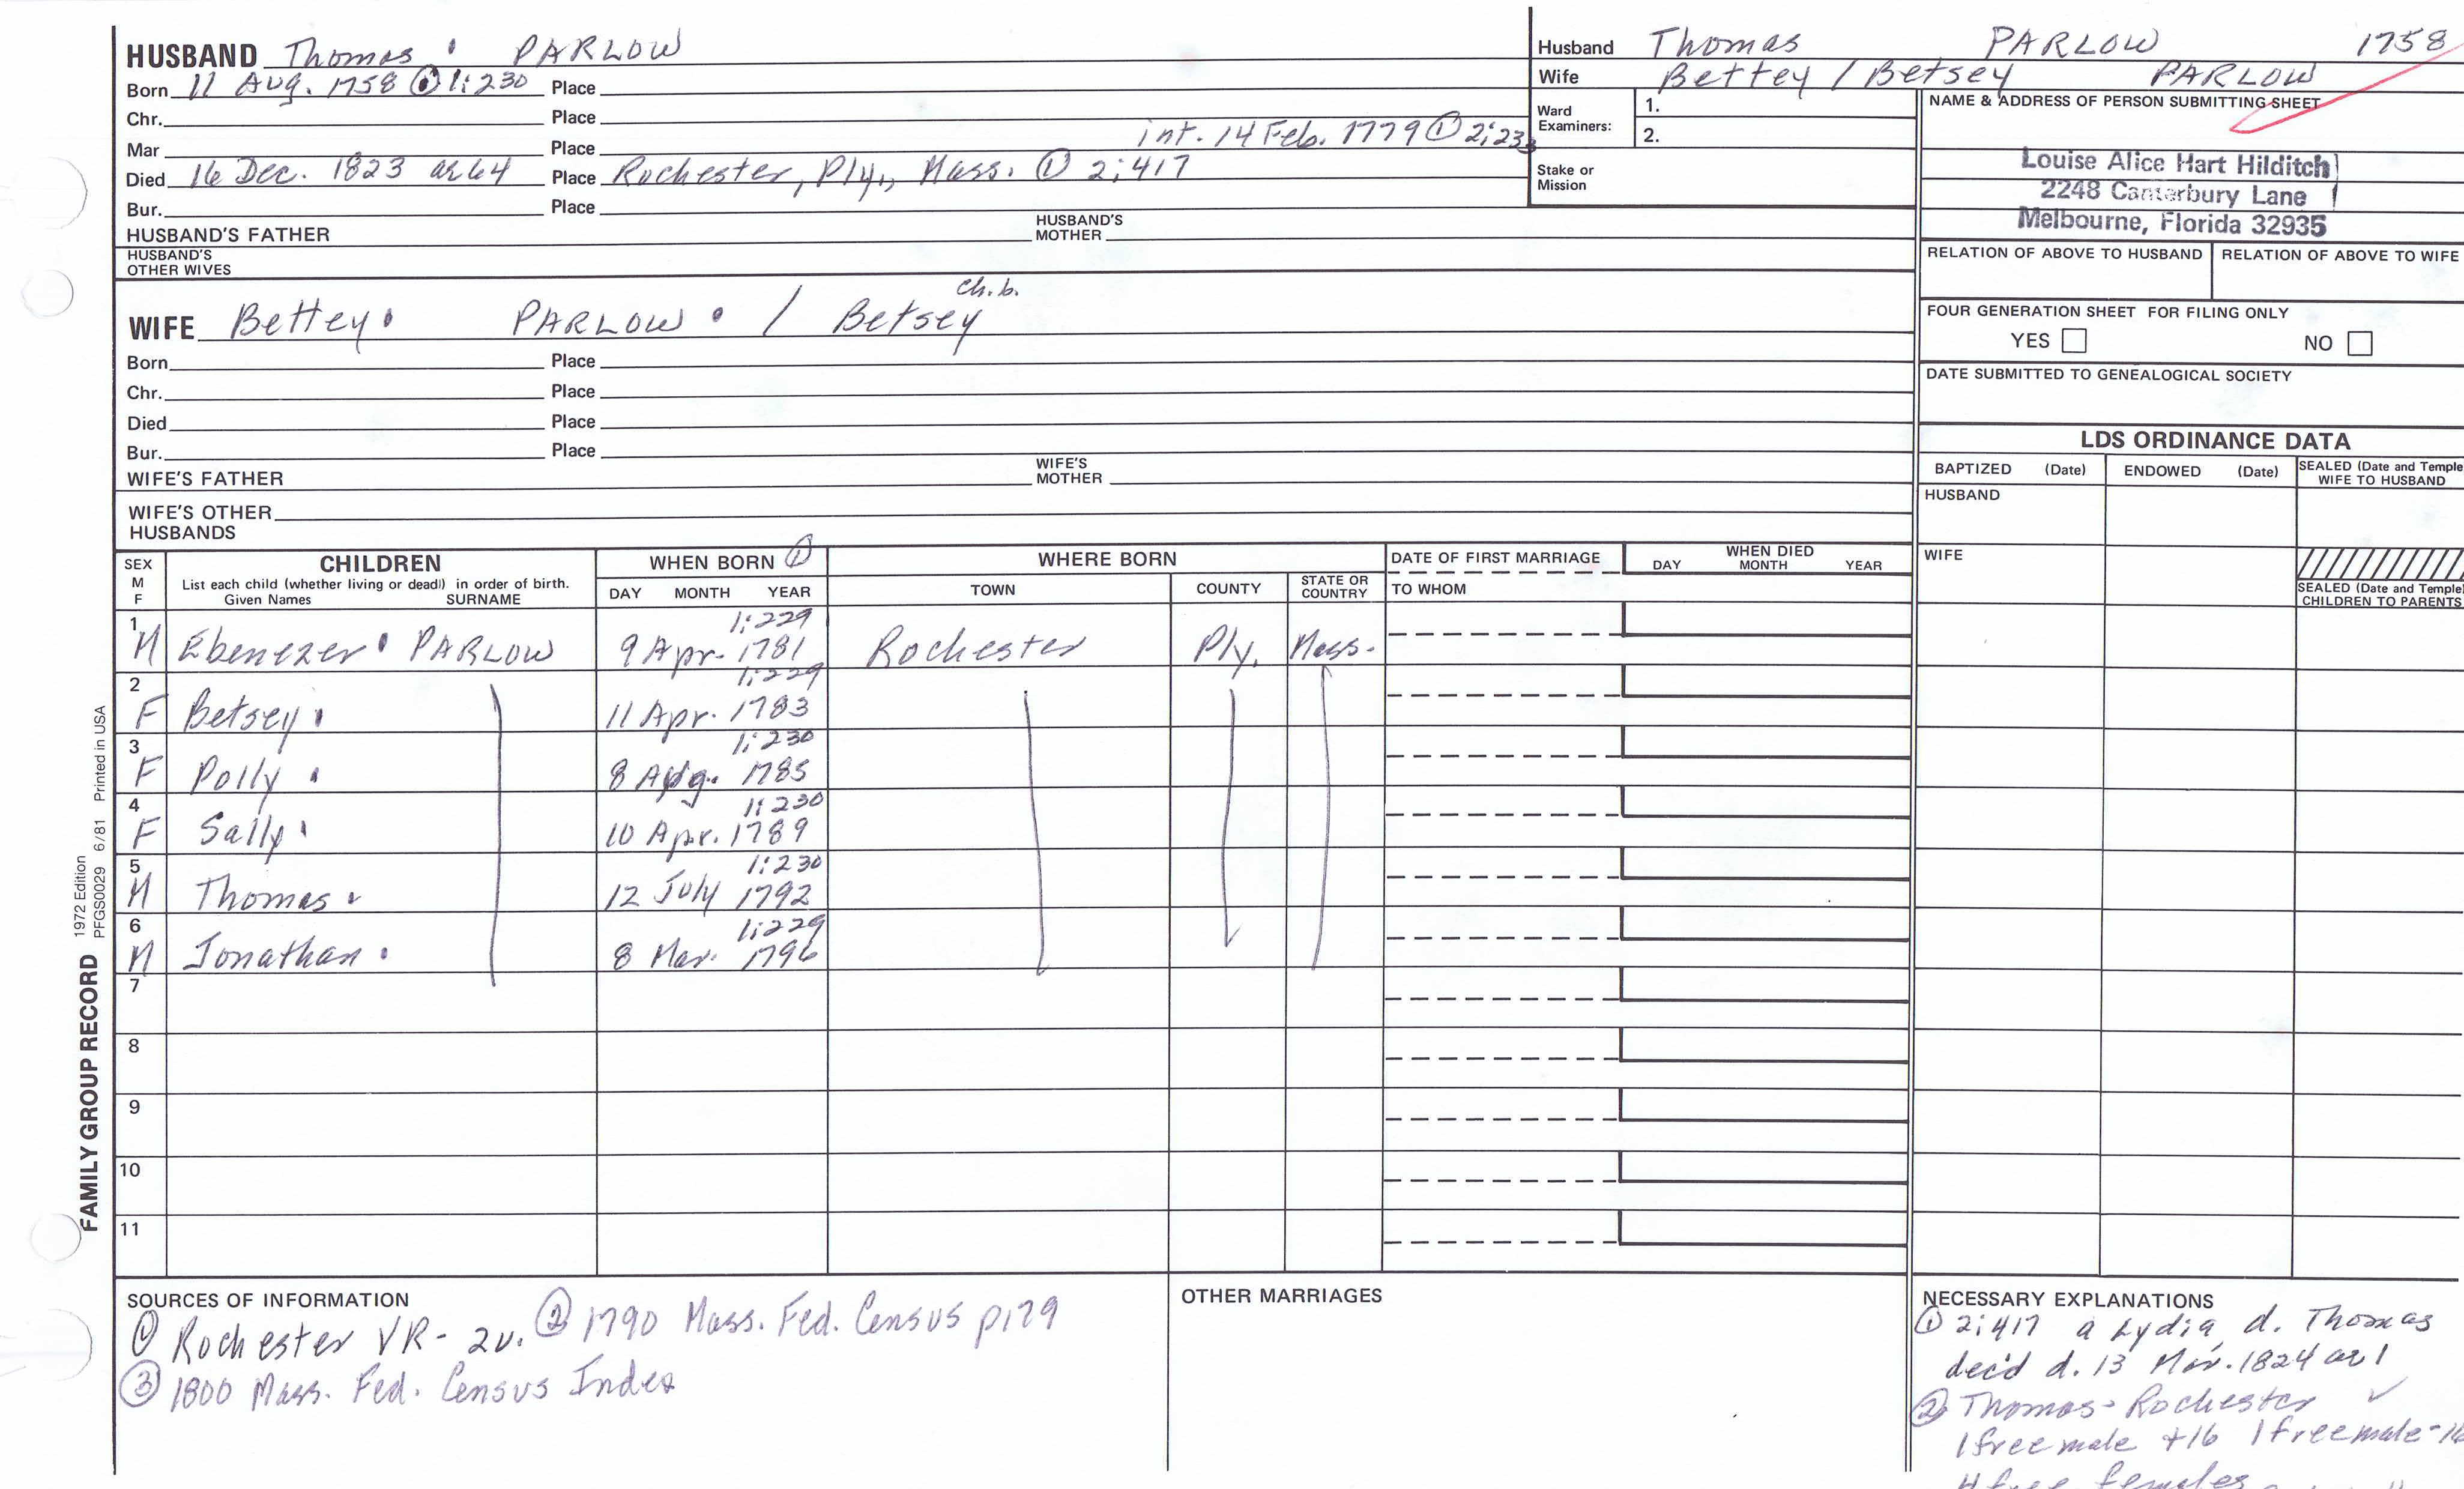 HUSBAND Thomas PARLOW
Born 11 Aug. 1758 ① 1:230 Place
Chr. Place
Mar Place int. 14 Feb. 1779 ① 2:233
Died 16 Dec. 1823 ae 64 Place Rochester, Ply., Mass. ① 2:417
Bur. Place
HUSBAND'S FATHER HUSBAND'S MOTHER
HUSBAND'S
OTHER WIVES
ch. b.
WIFE Bettey PARLOW / Betsey
Born Place
Chr. Place
Died Place
Bur. Place
WIFE'S FATHER WIFE'S MOTHER
WIFE'S OTHER
HUSBANDS
Husband Thomas PARLOW 1758
Wife Bettey / Betsey PARLOW
Ward Examiners: 1.
2.
Stake or
Mission
NAME & ADDRESS OF PERSON SUBMITTING SHEET
Louise Alice Hart Hilditch
2248 Canterbury Lane
Melbourne, Florida 32935
RELATION OF ABOVE TO HUSBAND RELATION OF ABOVE TO WIFE
FOUR GENERATION SHEET FOR FILING ONLY
YES NO
DATE SUBMITTED TO GENEALOGICAL SOCIETY
LDS ORDINANCE DATA
BAPTIZED (Date) ENDOWED (Date) SEALED (Date and Temple)
WIFE TO HUSBAND
HUSBAND
WIFE
SEALED (Date and Temple)
CHILDREN TO PARENTS
SEX
M
F
CHILDREN
List each child (whether living or dead) in order of birth.
Given Names SURNAME
WHEN BORN ①
DAY MONTH YEAR
WHERE BORN
TOWN COUNTY STATE OR COUNTRY
DATE OF FIRST MARRIAGE
TO WHOM
WHEN DIED
DAY MONTH YEAR
1:229
1 M Ebenezer PARLOW 9 Apr. 1781 Rochester Ply. Mass.
1:229
2 F Betsey 11 Apr. 1783
1:230
3 F Polly 8 Aug. 1785
1:230
4 F Sally 10 Apr. 1789
1:230
5 M Thomas 12 July 1792
1:229
6 M Jonathan 8 Mar. 1796
7
8
9
10
11
FAMILY GROUP RECORD 1972 Edition
PFGS0029 6/81 Printed in USA
SOURCES OF INFORMATION
① Rochester VR - 2v. ② 1790 Mass. Fed. Census p179
③ 1800 Mass. Fed. Census Index
OTHER MARRIAGES
NECESSARY EXPLANATIONS
① 2:417 a Lydia, d. Thomas
dec'd d. 13 Mar. 1824 ae 1
② Thomas - Rochester ✓
1 free male +16 1 free male -16
4 free females